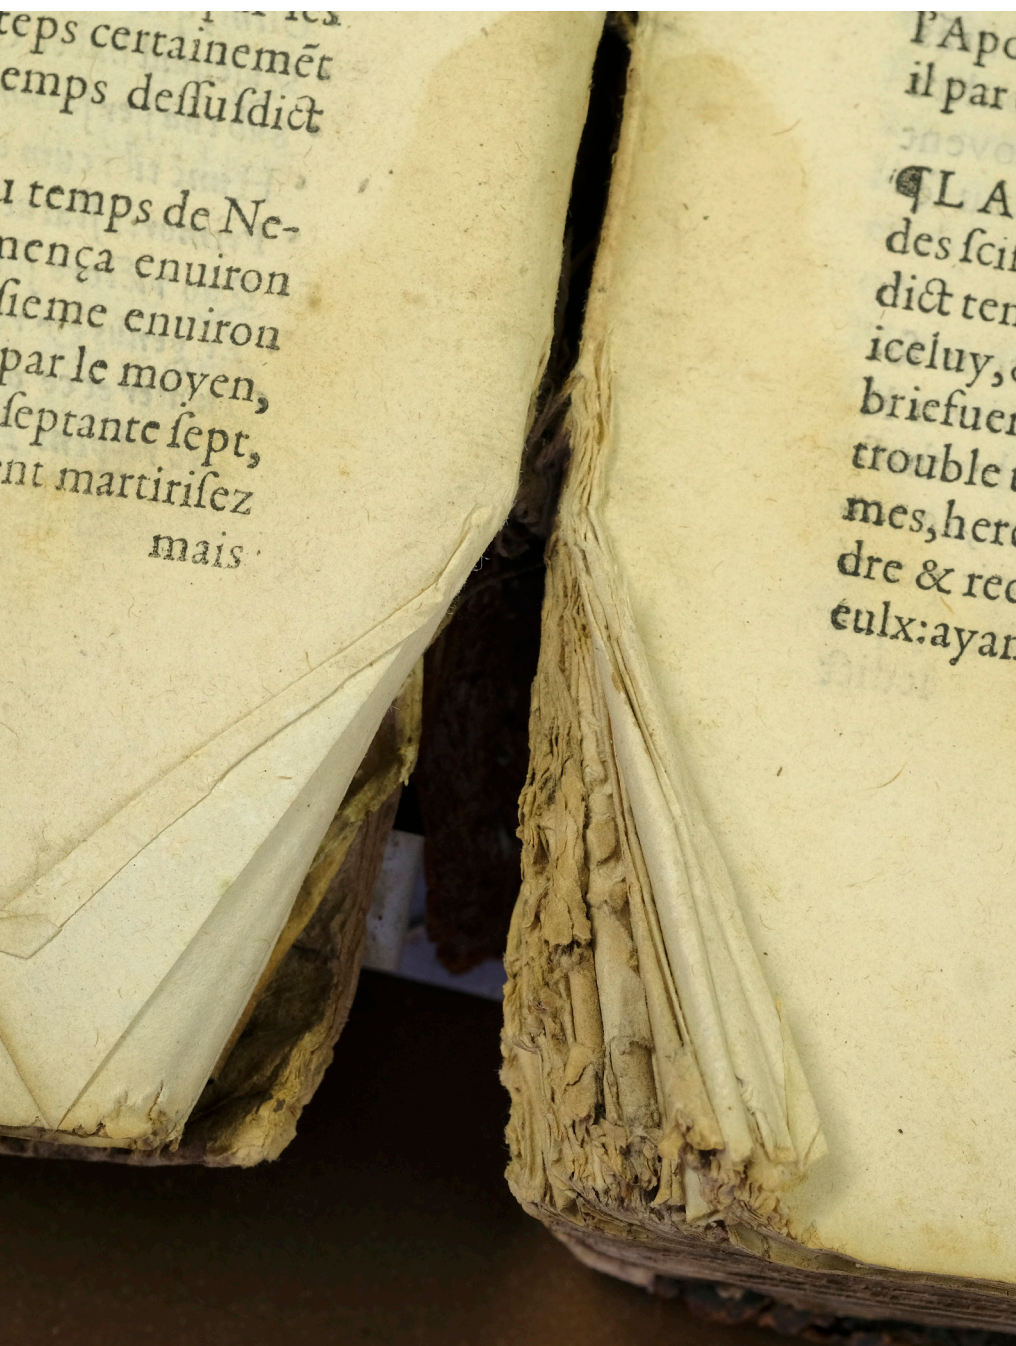 par les
teps certainemēt
emps deſſuſdict
u temps de Ne-
mença enuiron
ſieme enuiron
par le moyen,
ſeptante ſept,
ent martiriſez
mais
l'Apo
il par
¶L A
des ſciſ
dict ten
iceluy,
briefuer
trouble t
mes,here
dre & rec
eulx:ayan